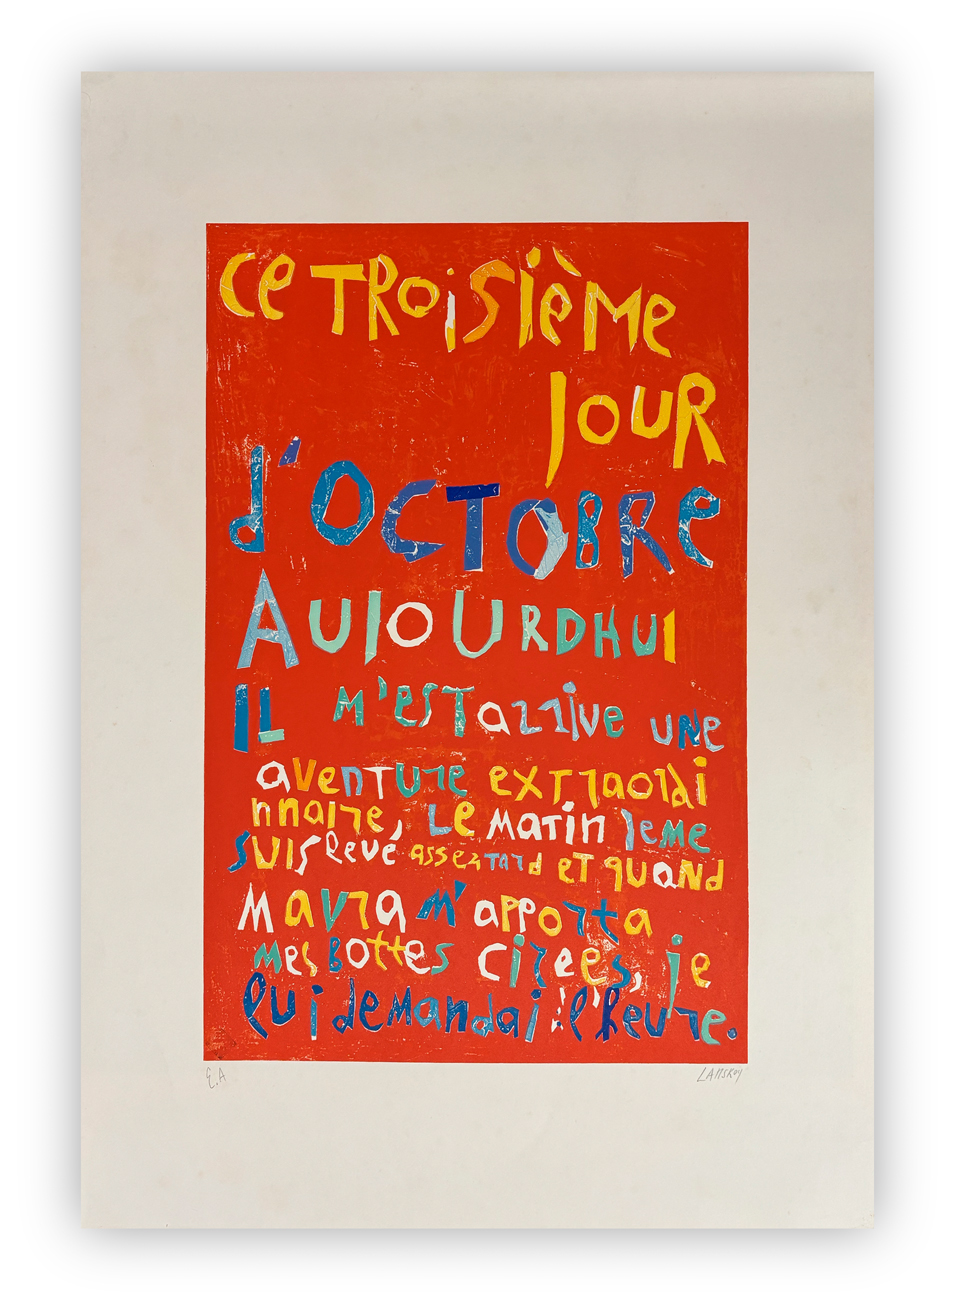 Ce TROisième
JOUR
d'OCTOBRe
AUJOURDHUI
IL M'esT arrive une
aventure extraordi
nnaire, Le matin Jeme
suis levé assez tard et quand
Mavra m'apporta
mes bottes cirées, je
lui demandai l'heure.
E.A LANSKOY